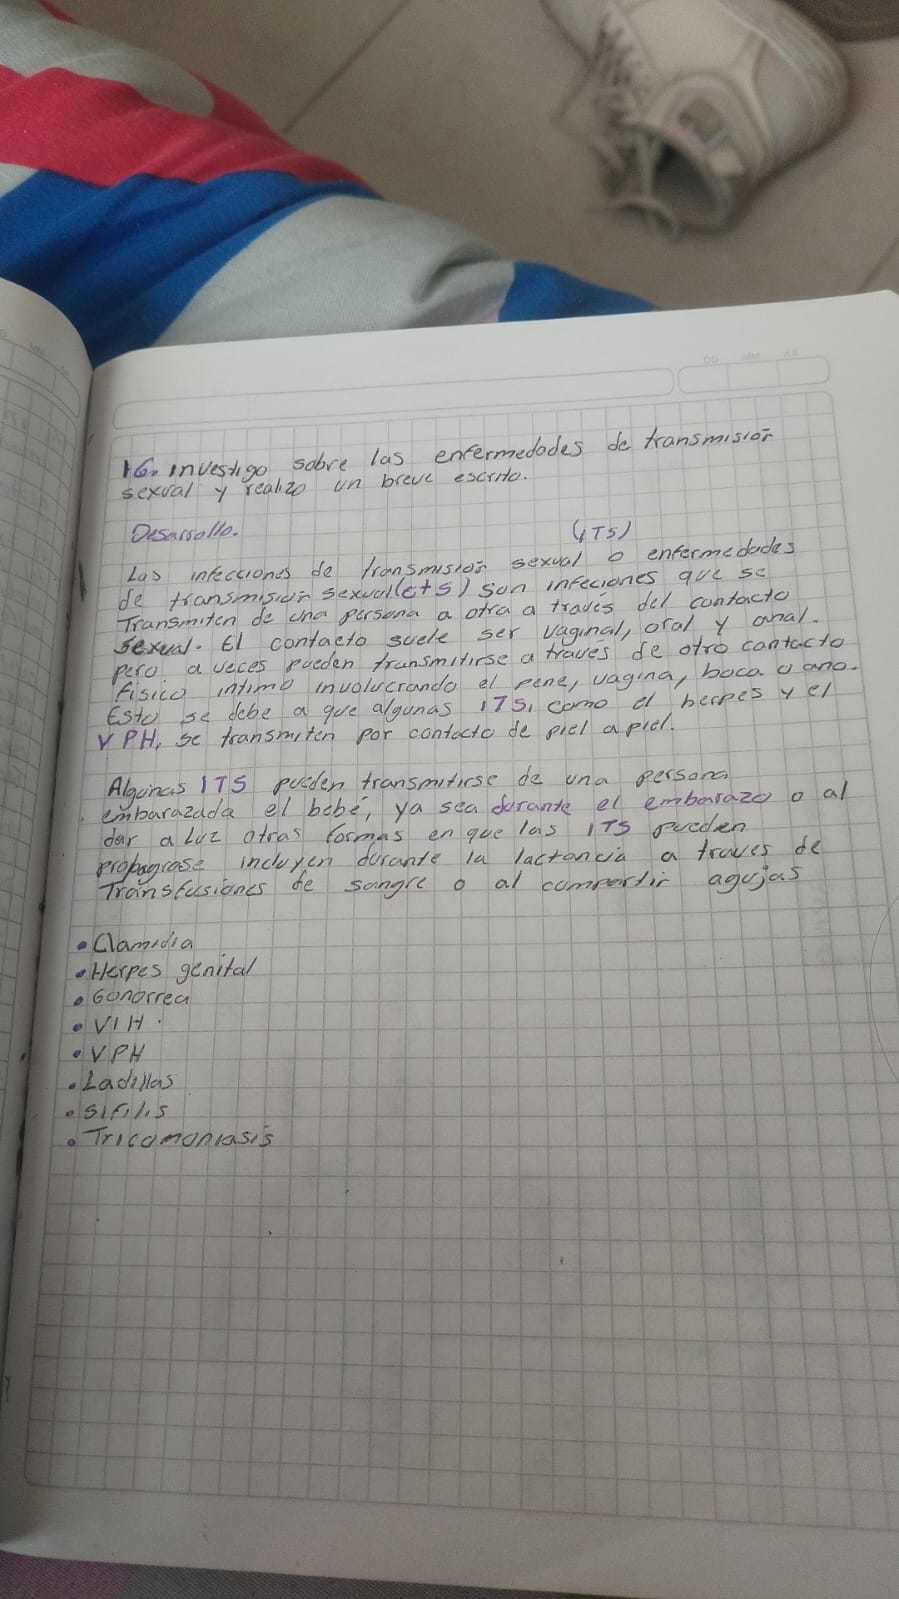 DD MM AA
16. Investigo sobre las enfermedades de transmisión
sexual y realizo un breve escrito.
Desarrollo.
(ITS)
Las infecciones de transmisión sexual o enfermedades
de transmisión sexual (ets) son infeciones que se
Transmiten de una persona a otra a través del contacto
sexual. El contacto suele ser vaginal, oral y anal.
pero a veces pueden transmitirse a traves de otro contacto
Físico intimo involucrando el pene, vagina, boca o ano.
Esto se debe a que algunas ITS, como el herpes y el
VPH, se transmiten por contacto de piel a piel.
Algunas ITS pueden transmitirse de una persona
embarazada el bebé, ya sea durante el embarazo o al
dar a Luz otras formas en que las ITS pueden
propagrase incluyen durante la lactancia a traves de
Transfusiones de sangre o al compartir agujas
• Clamidia
• Herpes genital
• Gonorrea
• VIH.
• VPH
• Ladillas
• Sifilis
• Tricomoniasis